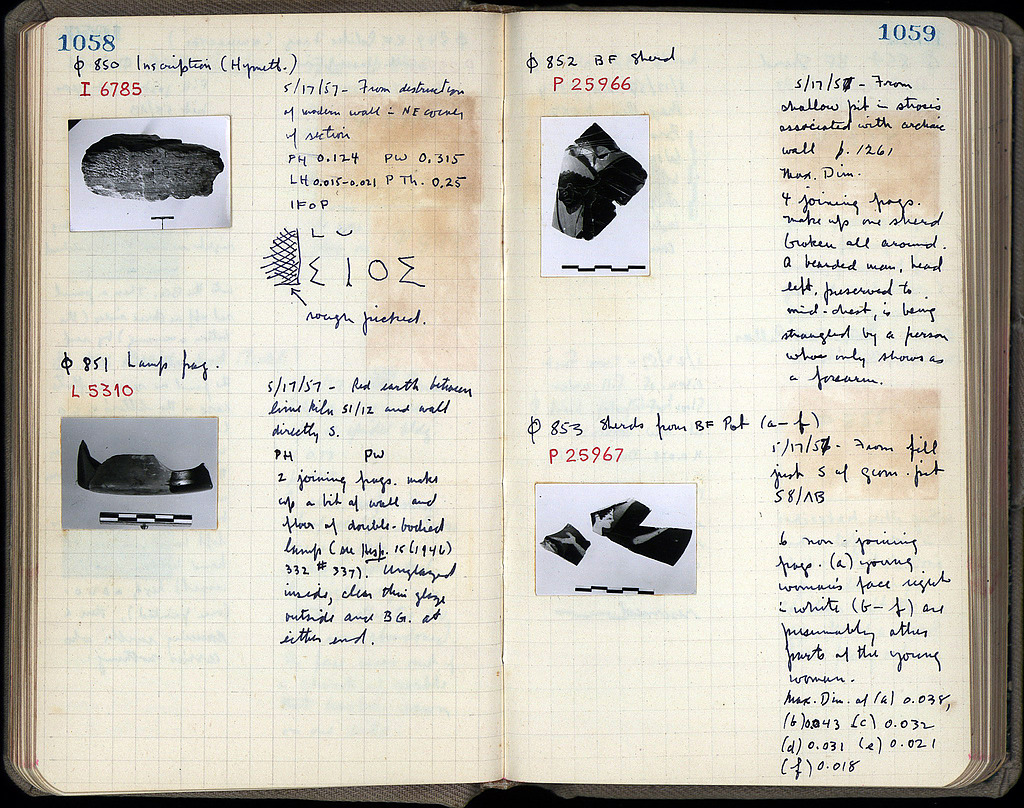 1058
Φ 850 Inscription (Hymett.)
I 6785
5/17/57 - From destruction
of modern wall in NE corner
of section
PH 0.124 PW 0.315
LH 0.015-0.021 P Th. 0.25
Σ Ι Ο Σ
rough picked.
Φ 851 Lamp frag.
L 5310
5/17/57 - Red earth between
lime kiln 51/12 and wall
directly S.
PH PW
2 joining frags. make
up a bit of wall and
floor of double-bodied
lamp (see Hesp. 15 (1946)
332 # 337). Unglazed
inside, clear thin glaze
outside and BG. at
either end.
1059
Φ 852 BF Sherd
P 25966
5/17/57 - From
shallow pit in strosis
associated with archaic
wall p. 1261
Max. Dim.
4 joining frags.
make up one sherd
broken all around.
A bearded man, head
left, preserved to
mid-chest, is being
strangled by a person
who only shows as
a forearm.
Φ 853 Sherds from BF Pot (a-f)
P 25967
5/17/57 - From fill
just S of geom. pit
58/ΛΒ
6 non-joining
frags. (a) young
woman's face right
in white (b-f) are
presumably other
parts of the young
woman.
Max. Dim. of (a) 0.038,
(b) 0.043 (c) 0.032
(d) 0.031 (e) 0.021
(f) 0.018